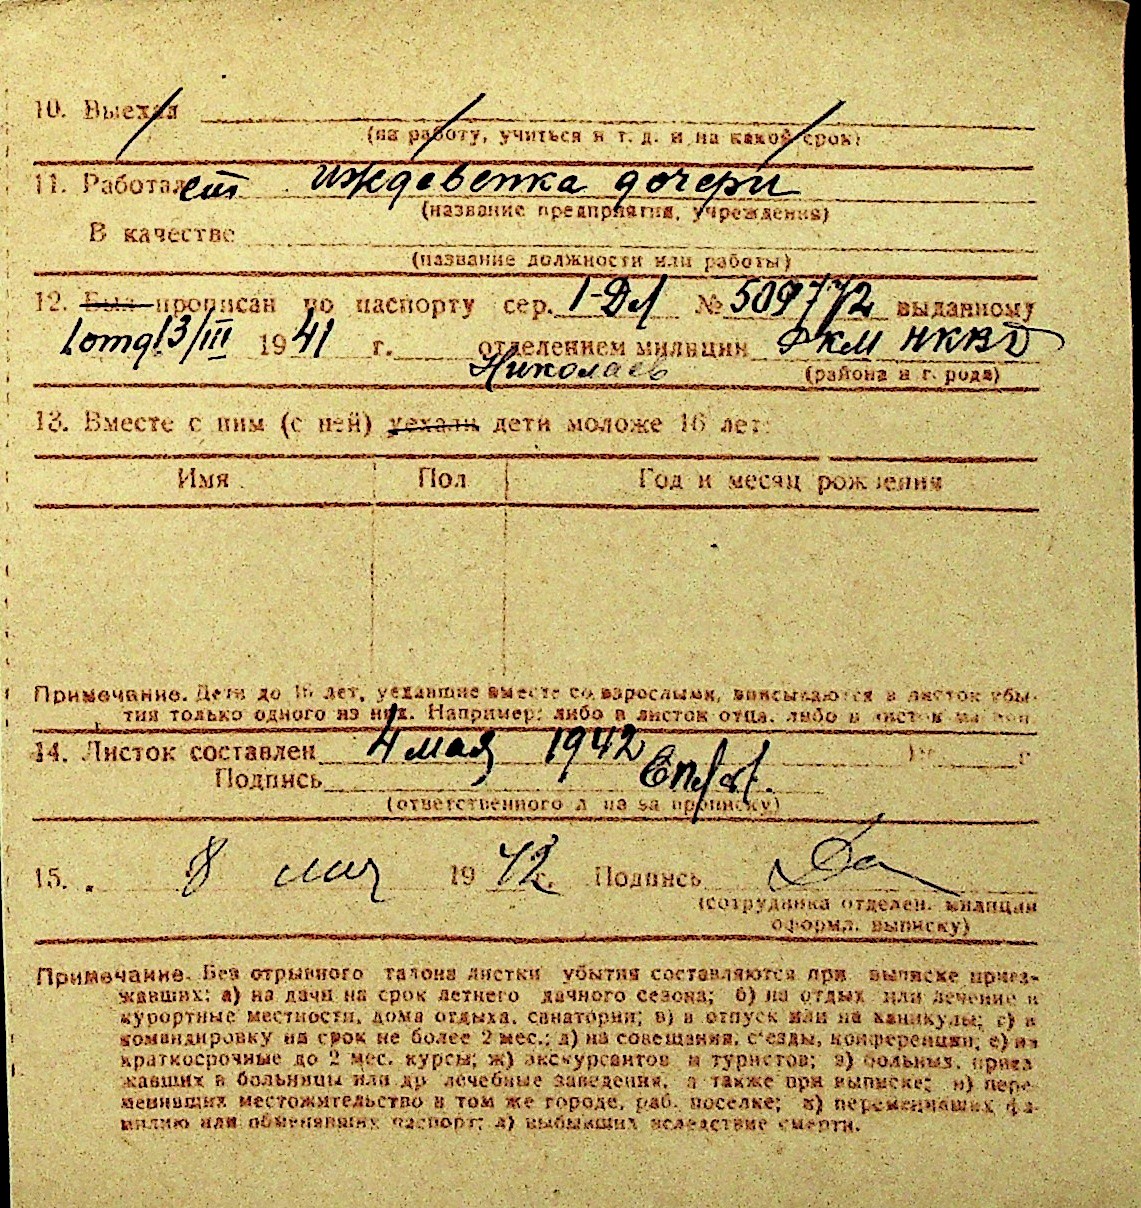 10. Выехал
(на работу, учиться и т. д. и на какой срок)
11. Работает иждевенка дочери
(название предприятия, учреждения)
В качестве
(название должности или работы)
12. Был прописан по паспорту сер. 1-Дл № 509772 выданному
1 отд 13/III 1941 г. отделением милиции РКМ НКВД
Николаев
(района и города)
13. Вместе с ним (с ней) уехали дети моложе 16 лет:
Имя Пол Год и месяц рождения
Примечание. Дети до 16 лет, уехавшие вместе со взрослыми, вписываются в листок убы-
тия только одного из них. Например: либо в листок отца, либо в листок матери.
14. Листок составлен 4 мая 1942 г.
Подпись
(ответственного лица за прописку)
15. 8 мая 1942 Подпись
(сотрудника отделен. милиции
оформл. выписку)
Примечание. Без отрывного талона листки убытия составляются при выписке приез-
жавших: а) на дачи на срок летнего дачного сезона; б) на отдых или лечение в
курортные местности, дома отдыха, санатории; в) в отпуск или на каникулы; г) в
командировку на срок не более 2 мес.; д) на совещания, с'езды, конференции; е) на
краткосрочные до 2 мес. курсы; ж) экскурсантов и туристов; з) больных, приез
жавших в больницы или др лечебные заведения, а также при выписке; и) пере-
менивших местожительство в том же городе, раб. поселке; к) переменивших фа-
милию или обменявших паспорт; л) выбывших вследствие смерти.